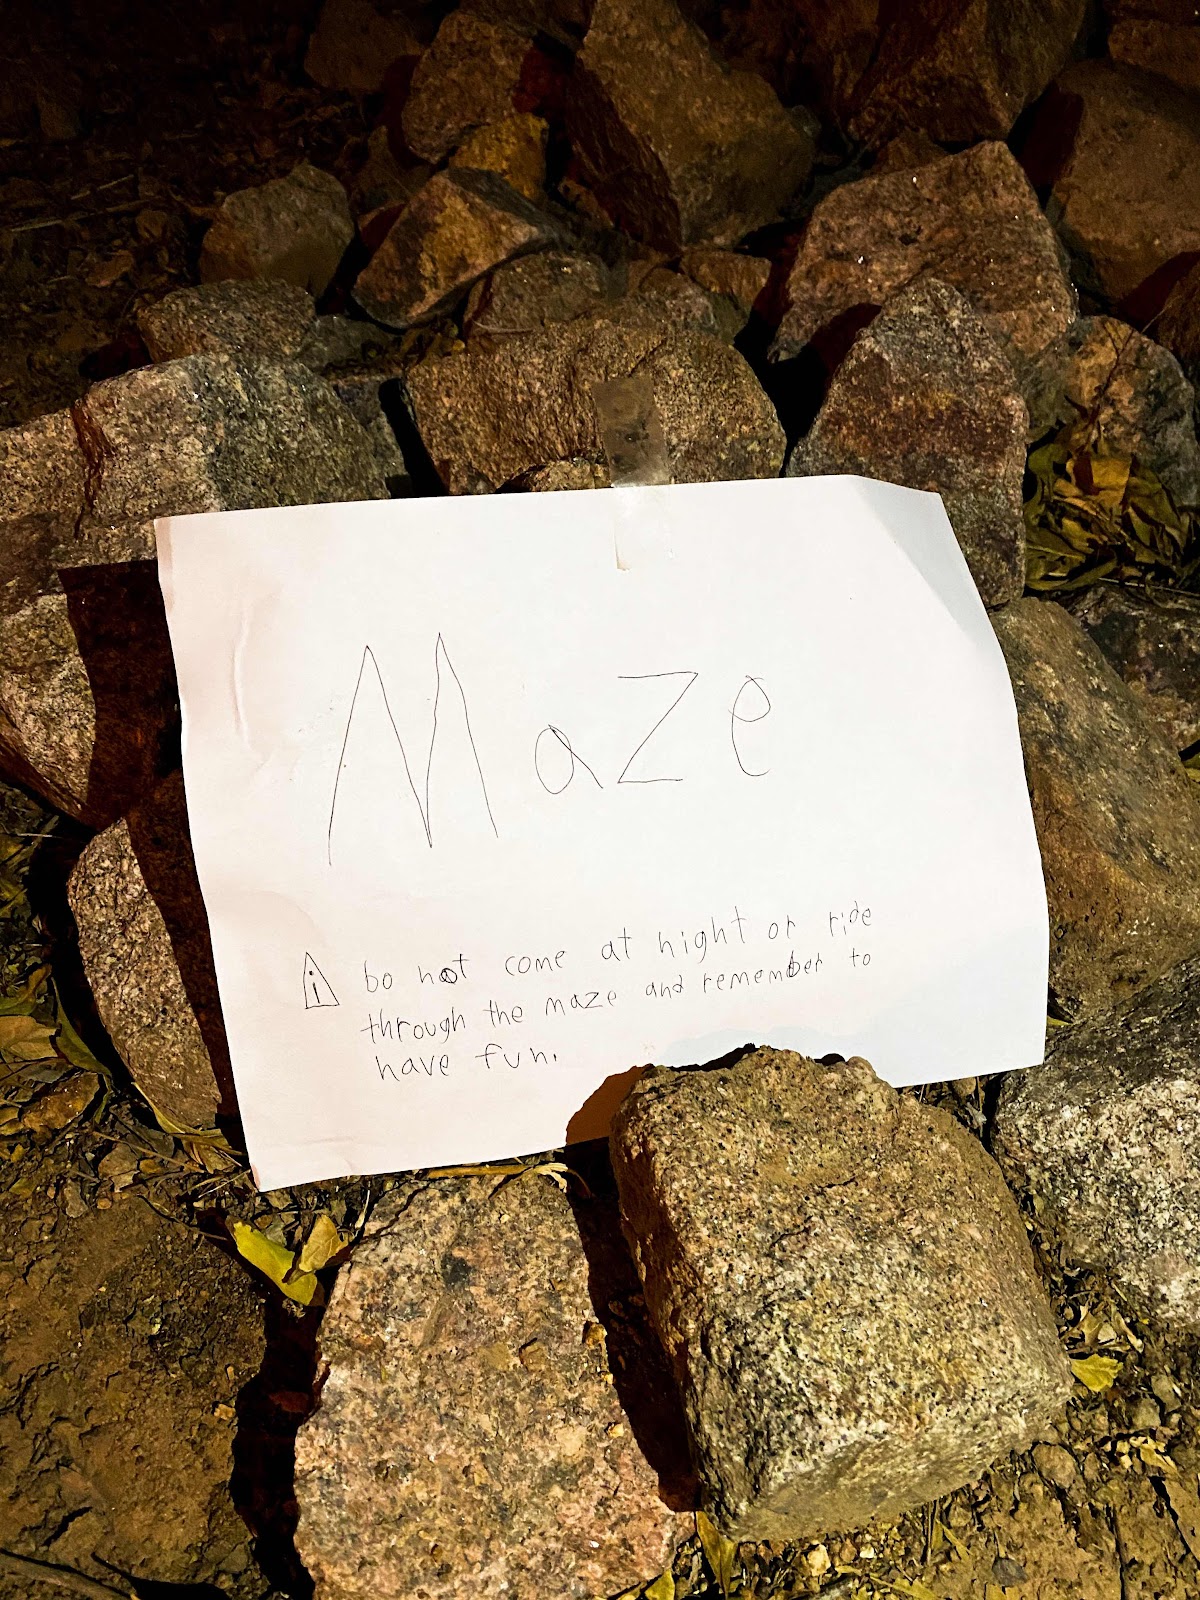 Maze
Do not come at night or ride
through the maze and remember to
have fun.